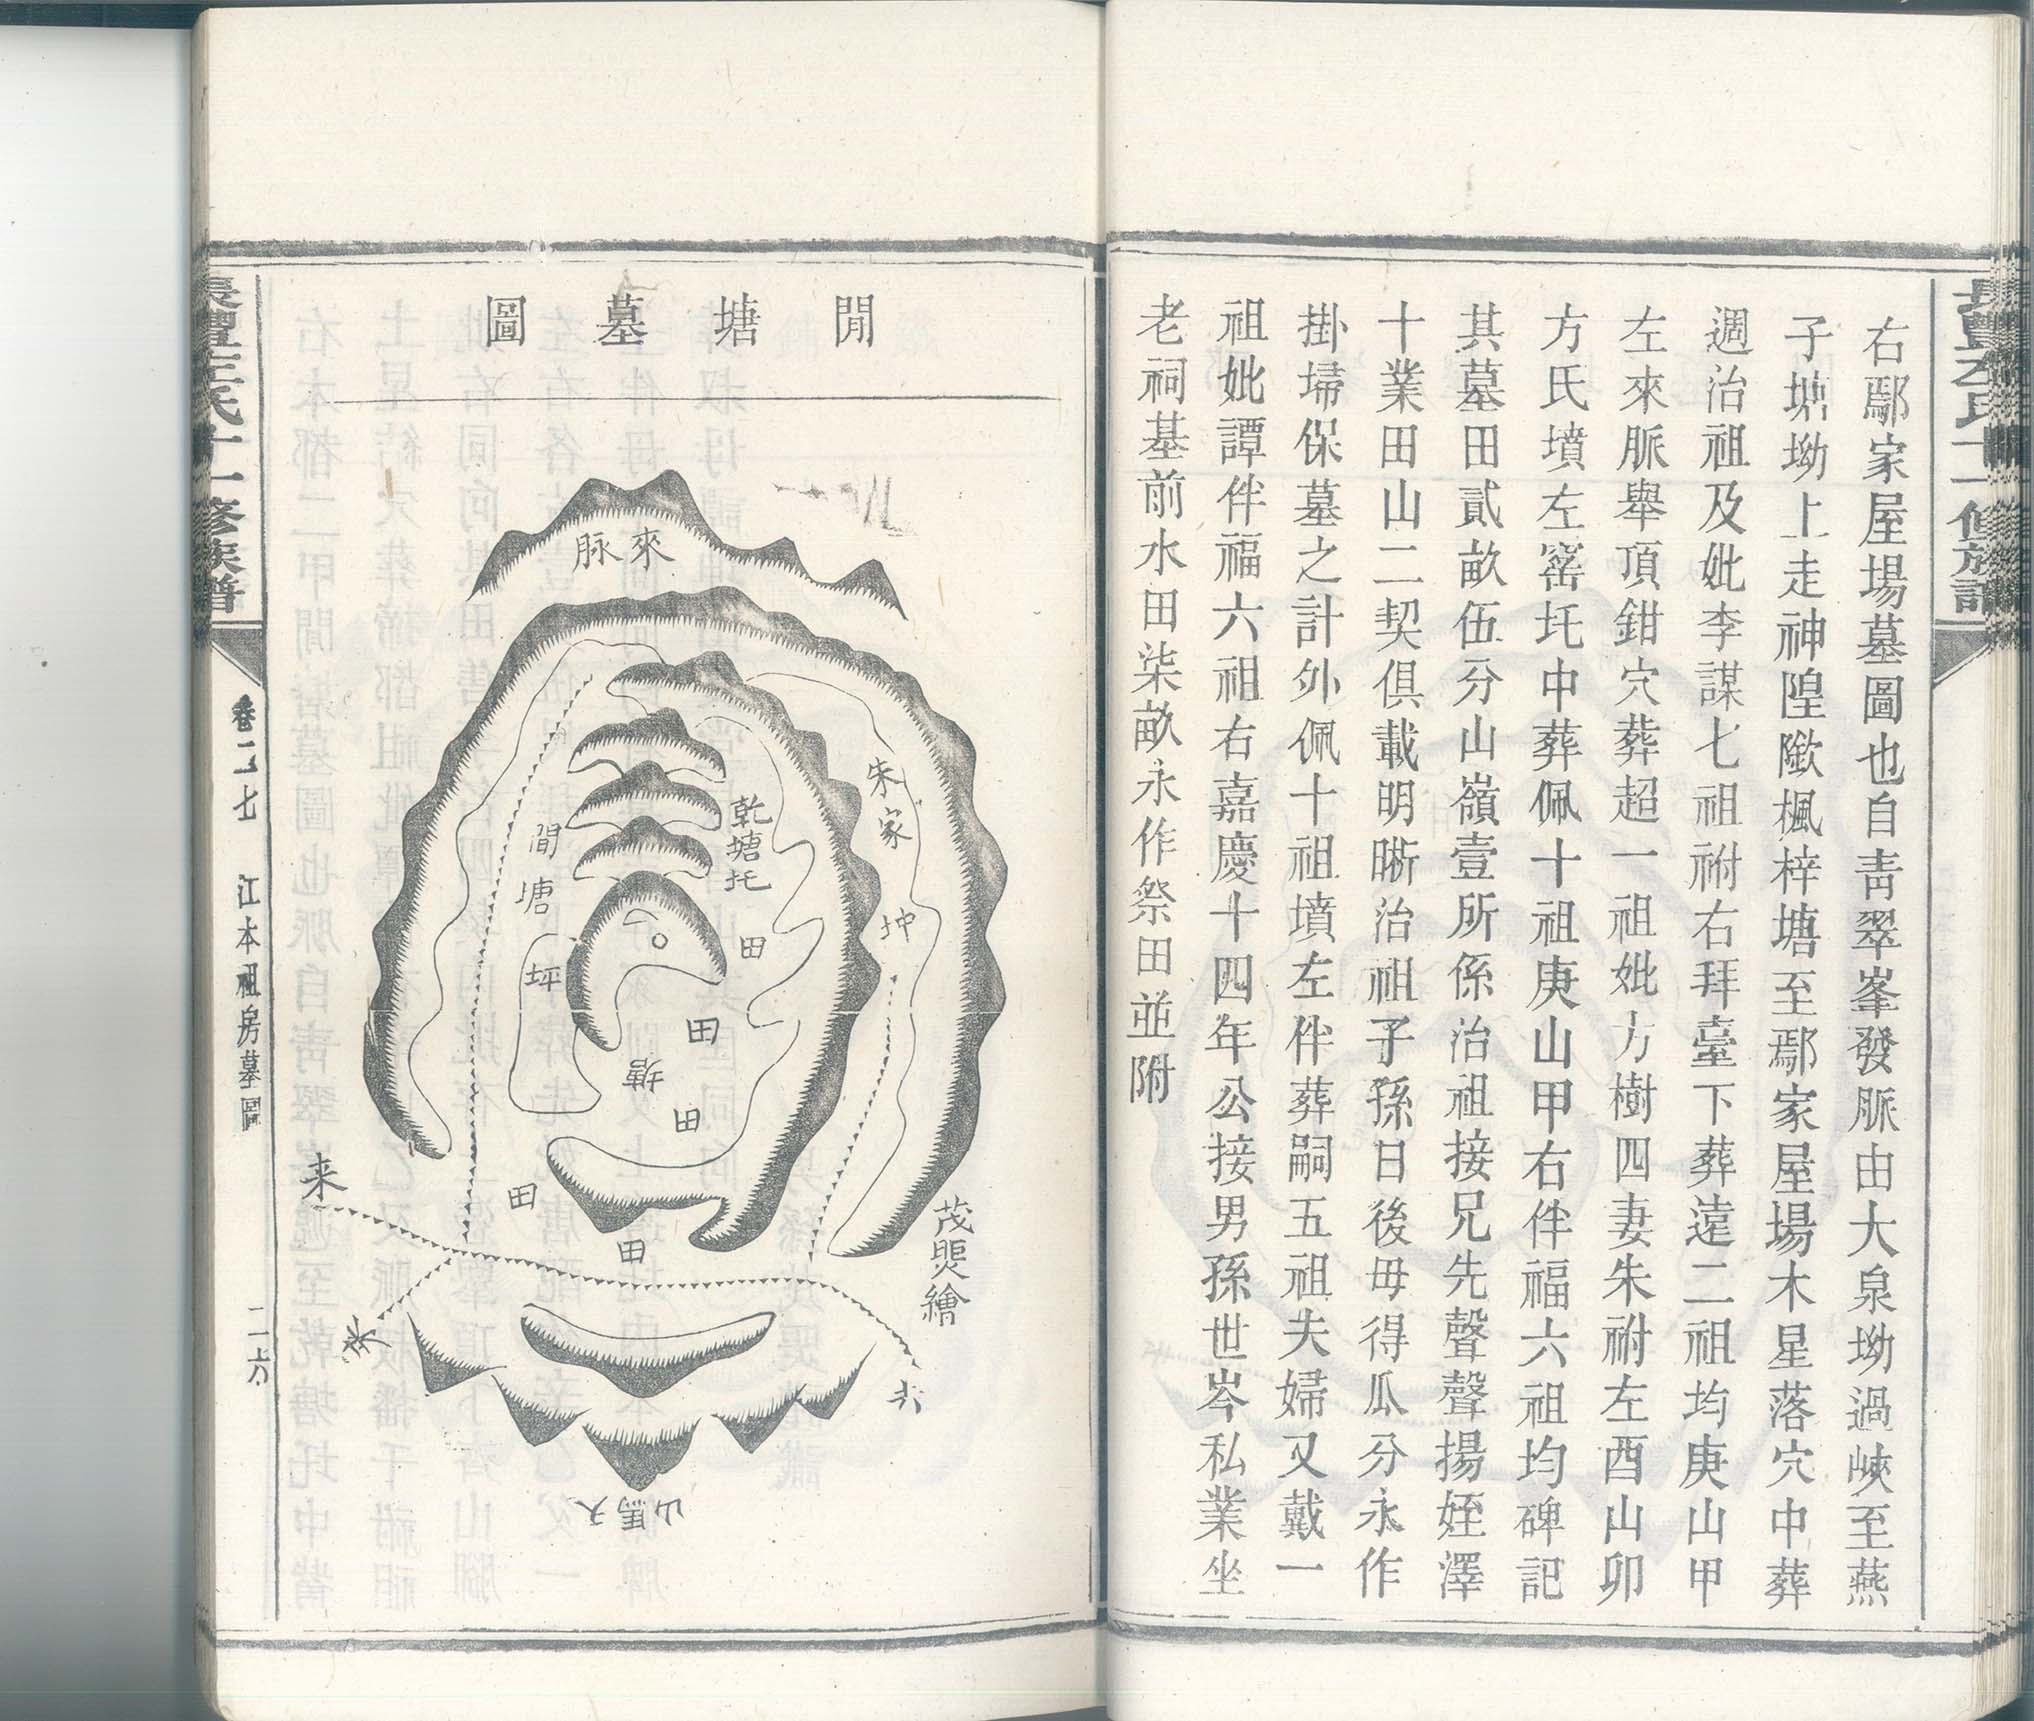 右鄢家屋場墓圖也自青翠峯發脈由大泉坳過峽至燕
子塘坳上走神隍歇楓梓塘至鄢家屋場木星落穴中葬
週治祖及妣李謀七祖祔右拜臺下葬遠二祖均庚山甲
左來脈舉頂鉗穴葬超一祖妣方樹四妻朱祔左酉山卯
方氏墳左窰圫中葬佩十祖庚山甲右伴福六祖均碑記
其墓田貳畝伍分山嶺壹所係治祖接兄先聲聲揚姪澤
十業田山二契俱載明晰治祖子孫日後毋得瓜分永作
掛埽保墓之計外佩十祖墳左伴葬嗣五祖夫婦又戴一
祖妣譚伴福六祖右嘉慶十四年公接男孫世岑私業坐
老祠基前水田柒畝永作祭田並附
閒塘墓圖
來脈
朱家
坤
乾塘圫
間塘坪
田
田
塘
田
田
田
来
水
茂煛繪
天馬山
左氏十一修族譜
卷二七
江本祖房墓圖
二六